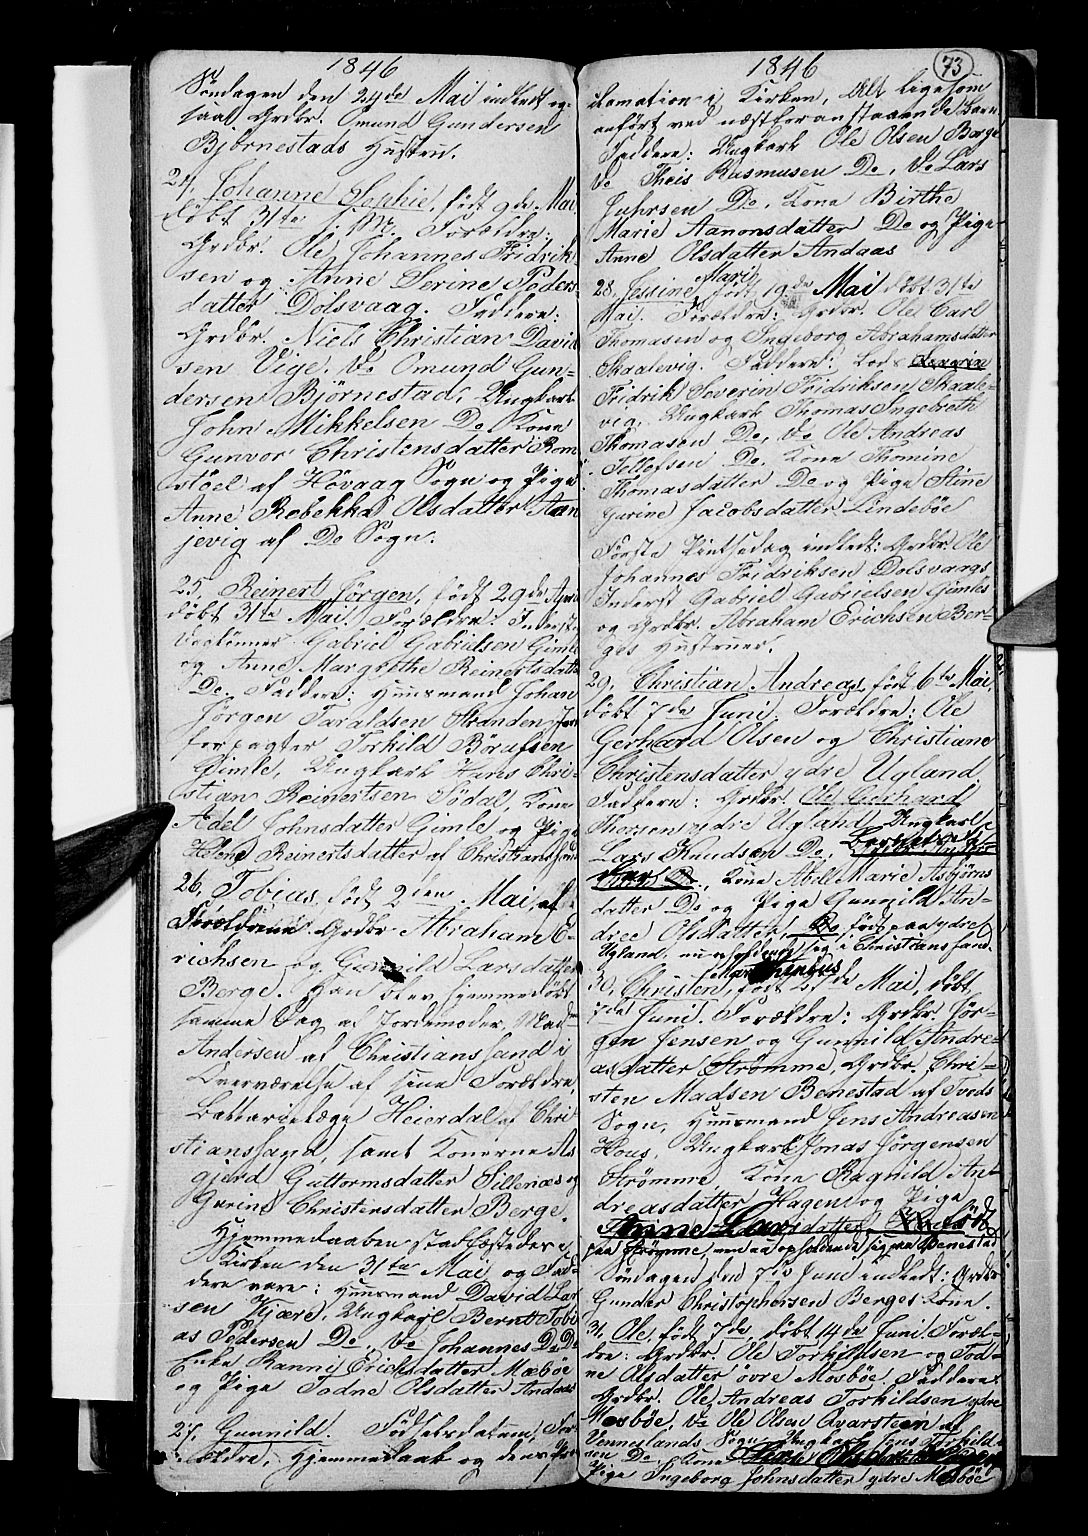 1846
Søndagen den 24de Mai indledt og-
saa Grdbr. Omund Gundersen
Bjørnestads Hustru.
24, Johanne Sophie, født 9de Mai
døbt 31te s. M. Forældre:
Grdbr. Ole Johannes Fridrik-
sen og Anne Serine Peders
datter Dolsvaag. Faddere:
Grdbr. Niels Christian David
sen Vige. Do Omund Gun-
dersen Bjørnestad, Ungkarl
John Mikkelsen Do Kone
Gunvor Christensdatter Rom
støel af Høvaag Sogn og Pige
Anne Rebekka Olsdatter Aan
jevig af Do Sogn.
25, Reinert Jørgen, født 29de April
døbt 31te Mai. Forældre: Inderst
Gabriel Gabrielsen Gimle
og Anne Margrethe Reinertsdatt
Do. Faddere: Huusmand Johan
Jørgen Taraldsen Stranden
forpagter Torkild Børufsen
Gimle, Ungkarl Hans Chri-
stian Reinertsen Sødal, Kone
Adel Johnsdatter Gimle og Pige
Helene Reinertsdatter af Christianssand
26, Tobias, født 2den Mai, af
Forældrene Grdbr Abraham E-
richsen og Gunild Larsdatter
Berge. Han blev hjemmedøbt
samme Dag af Jordemoder Mad
Andersen af Christianssand i
Overværelse af sine Forældre,
Batterielæge Heierdal af Chri
stianssand, samt Konerne As
gjerd Guttormsdatter Sillenæs og
Gurine Christensdatter Berge.
Hjemmedaaben stadfæstedes i
Kirken den 31te Mai og Fad-
dere vare: Huusmand David Lar
sen Kjære, Ungkarl Bernt Tobi
as Pedersen Do, Do Johannes Do Do
Enke Ranni Erichsdatter Mæbøe
og Pige Todne Olsdatter Andaas
27, Gunnild. Fødselsdatum, For
ældre, Hjemmedaab og dens Pro
1846
73
clamation i Kirken, Alt ligesom
anført ved næstforanstaaende Barn
Faddere: Ungkarl Ole Olsen Berge
Do Theis Rasmusen Do, Do Lars
Do, Kone Birthe
Marie Aanonsdatter Do og Pige
Anne Olsdatter Andaas
28, Jessine Marie, født 19de Mai døbt 31te
Mai. Forældre: Grdbr. Ole Carl
Thomasen og Ingeborg Abrahamsdatter
Skaalevig. Faddere: Lods
Fridrik Severin Fridriksen Skaale-
vig, Ungkarl Thomas Ingebreth
Thomasen Do, Do Ole Andreas
Tellefsen Do. Kone Thomine
Thomasdatter Do og Pige Stine
Gurine Jacobsdatter Lindebøe
Første Pintsedag indledt: Grdbr. Ole
Johannes Fridriksen Dolsvaags
Inderst Gabriel Gabrielsen Gimles
og Grdbr. Abraham Erichsen Ber-
ges Hustruer.
29, Christian Andreas, født 6te Mai
døbt 7de Juni. Forældre: Ole
Gerhard Olsen og Christiane
Christensdatter ydre Ugland.
Faddere: Grdbr. Ole Gerhard
Thorsen ydre Ugland, Ungkarl
Lars Knudsen Do,
Do, Kone Abell Marie Asbjørns
datter Do og Pige Gunild An-
drea Olsdatter, Do født paa ydre
Ugland, nu opholdende sig i Christianssand.
30, Christen Marthinius, født 21de Mai, døbt
7de Juni. Forældre: Grdbr. Jør-
gen Jensen og Gunnild Andre-
asdatter Strømme, Grdbr. Chri-
sten Madsen Benestad af Tveds
Sogn, Huusmand Jens Andreasen
Hous, Ungkarl Jonas Jørgensen
Strømme, Kone Ragnild An-
dreasdatter Hagen og Pige
Anne Larsdatter, født
paa Strømme, men nu opholdende sig paa Benestad
Søndagen den 7de Juni indledt: Grdbr
Gunder Christophersen Berges Kone.
31, Ole, født 7de, døbt 14de Juni. Foræl-
dre: Grdbr Ole Torkildsen og Tod-
ne Olsdatter øvre Mosbøe. Faddere:
Grdbr. Ole Andreas Torkildsen ydre
Mosbøe, Do Ole Olsen Qvarsteen af
Vennelands Sogn, Ungkarl Jens Torkild-
sen Do Kone
Pige Ingeborg Johnsdatter ydre Mosbøe